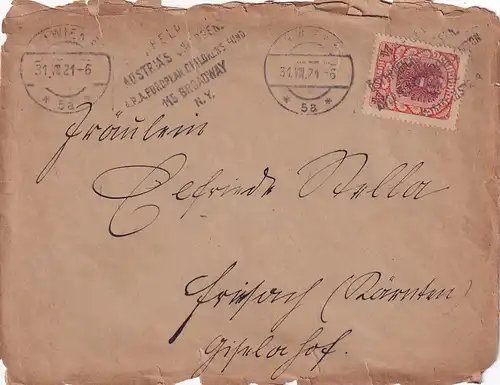 WIEN
31.VIII.21-6
* 5a *
HELP
AUSTRIA'S CHILDREN
A.R.A. EUROPEAN CHILDREN'S FUND
115 BROADWAY
N.Y.
WIEN
31.VIII.21-6
* 5a *
Fräulein
Elfriede Stella
Friesach (Kärnten)
Giselahof.